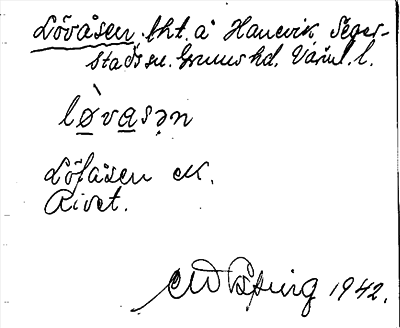 Lövåsen. lht. å Hanevik, Seger-
stads sn. Grums hd. Värml. l.
lø̀vasən
Löfåsen
Rivet.
1942.